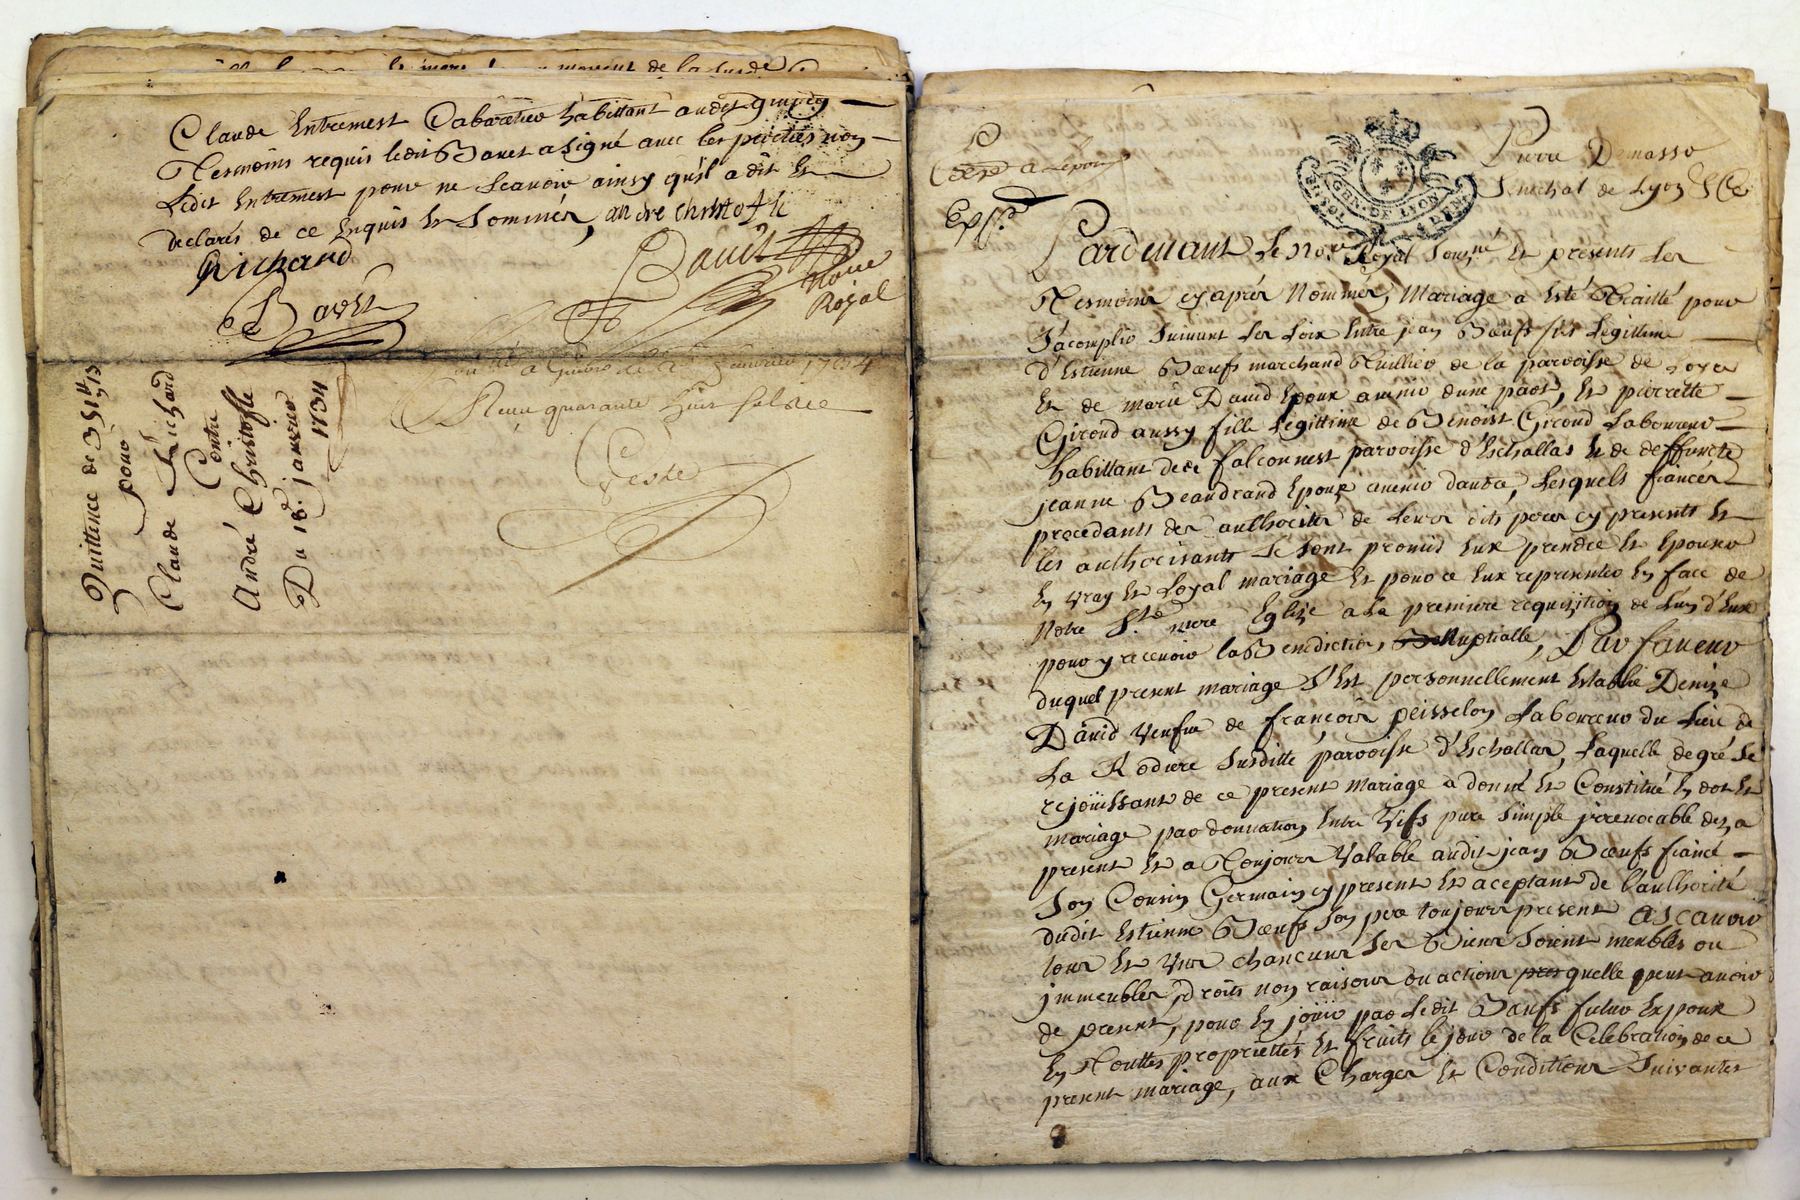 Claude Entremest Cabaretier habittant audit
Tesmoins requis ledit Bavet a signé avec les parties non
Ledit Entremest pour ne scavoir ainsy qu'il a dit Et
declarés de ce Enquis Et Sommés, andre christofle
Richard
Royal
janvier 1734
Reçu quarante huit sols
Quittence de
pour
Claude Richard
Contre
André Christofle
Du 18e janvier
1734
GEN. DE LION
Pierre Demasso
Senechal de Lyon
Pardevant Le Nore Royal Souzné Et presents Les
Tesmoins cy aprés Nommés, Mariage a Esté Traitté pour
s'acomplir suivant Les Loix Entre jean Bœufs fils Legittime
d'Estienne Bœufs marchand Thuillier de la parroisse de Loyre
Et de marie David Epoux avenir d'une part, Et pierrette
Giroud aussy fille Legittime de Benoist Giroud Laboureur
habittant de de falconnest parroisse d'Eschallas Et de deffuncte
jeanne Beaudrand Epouze avenir dautre, Lesquels fiancés
procedants des authorités de Leurs dits peres cy presents Et
les authorisants Se sont promis Eux prendre Et Epouzer
En vray Et Loyal mariage Et pour ce Eux representer En face de
Notre Ste mere Eglize a La premiere requizition de L'un d'Eux
pour y recevoir la Benediction Nuptialle, Par faveur
duquel present mariage S'Est personnellement Establie Denize
David Veufve de françois peisselon Laboureur du Lieu de
La Rodiere Susditte parroisse d'Eschallas, Laquelle de gré Se
rejouissant de ce present mariage a donné Et Constitué En dot Et
mariage par donnation Entre Vifs pure Simple jrrevocable dez a
present Et a Toujours Valable audit jean Bœufs fiancé
Son Cousin Germain cy present Et aceptant de l'authorité
dudit Estienne Bœufs Son pere toujours present ascavoir
tous Et Vns chancuns Ses Biens Soient meubles ou
jmmeubles, droits non raisons ou actions quelle peut avoir
de present, pour En jouir par Ledit Bœufs futur Expoux
En Touttes proprietés Et fruits le jour de la Celebration de ce
present mariage, aux Charges Et Conditions Suivantes